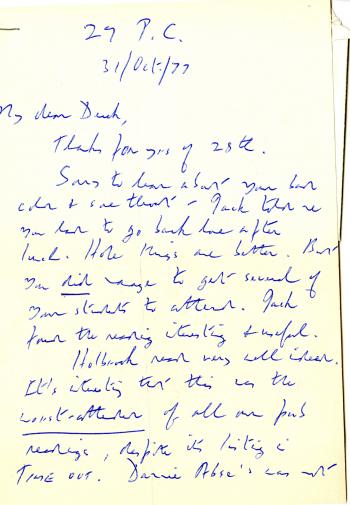 29 P.C.
31/Oct/77
My dear Derek,
Thanks for yrs of 28th.
Sorry to hear about your bad
cold & sore throat – Jack told me
you had to go back home after
lunch. Hope things are better. But
you did manage to get several of
your students to attend. Jack
found the reading interesting & useful.
Holbrook read very well indeed.
It's interesting that this was the
worst-attended of all our pub
readings, despite its listing in
TIME OUT. Dannie Abse's was not